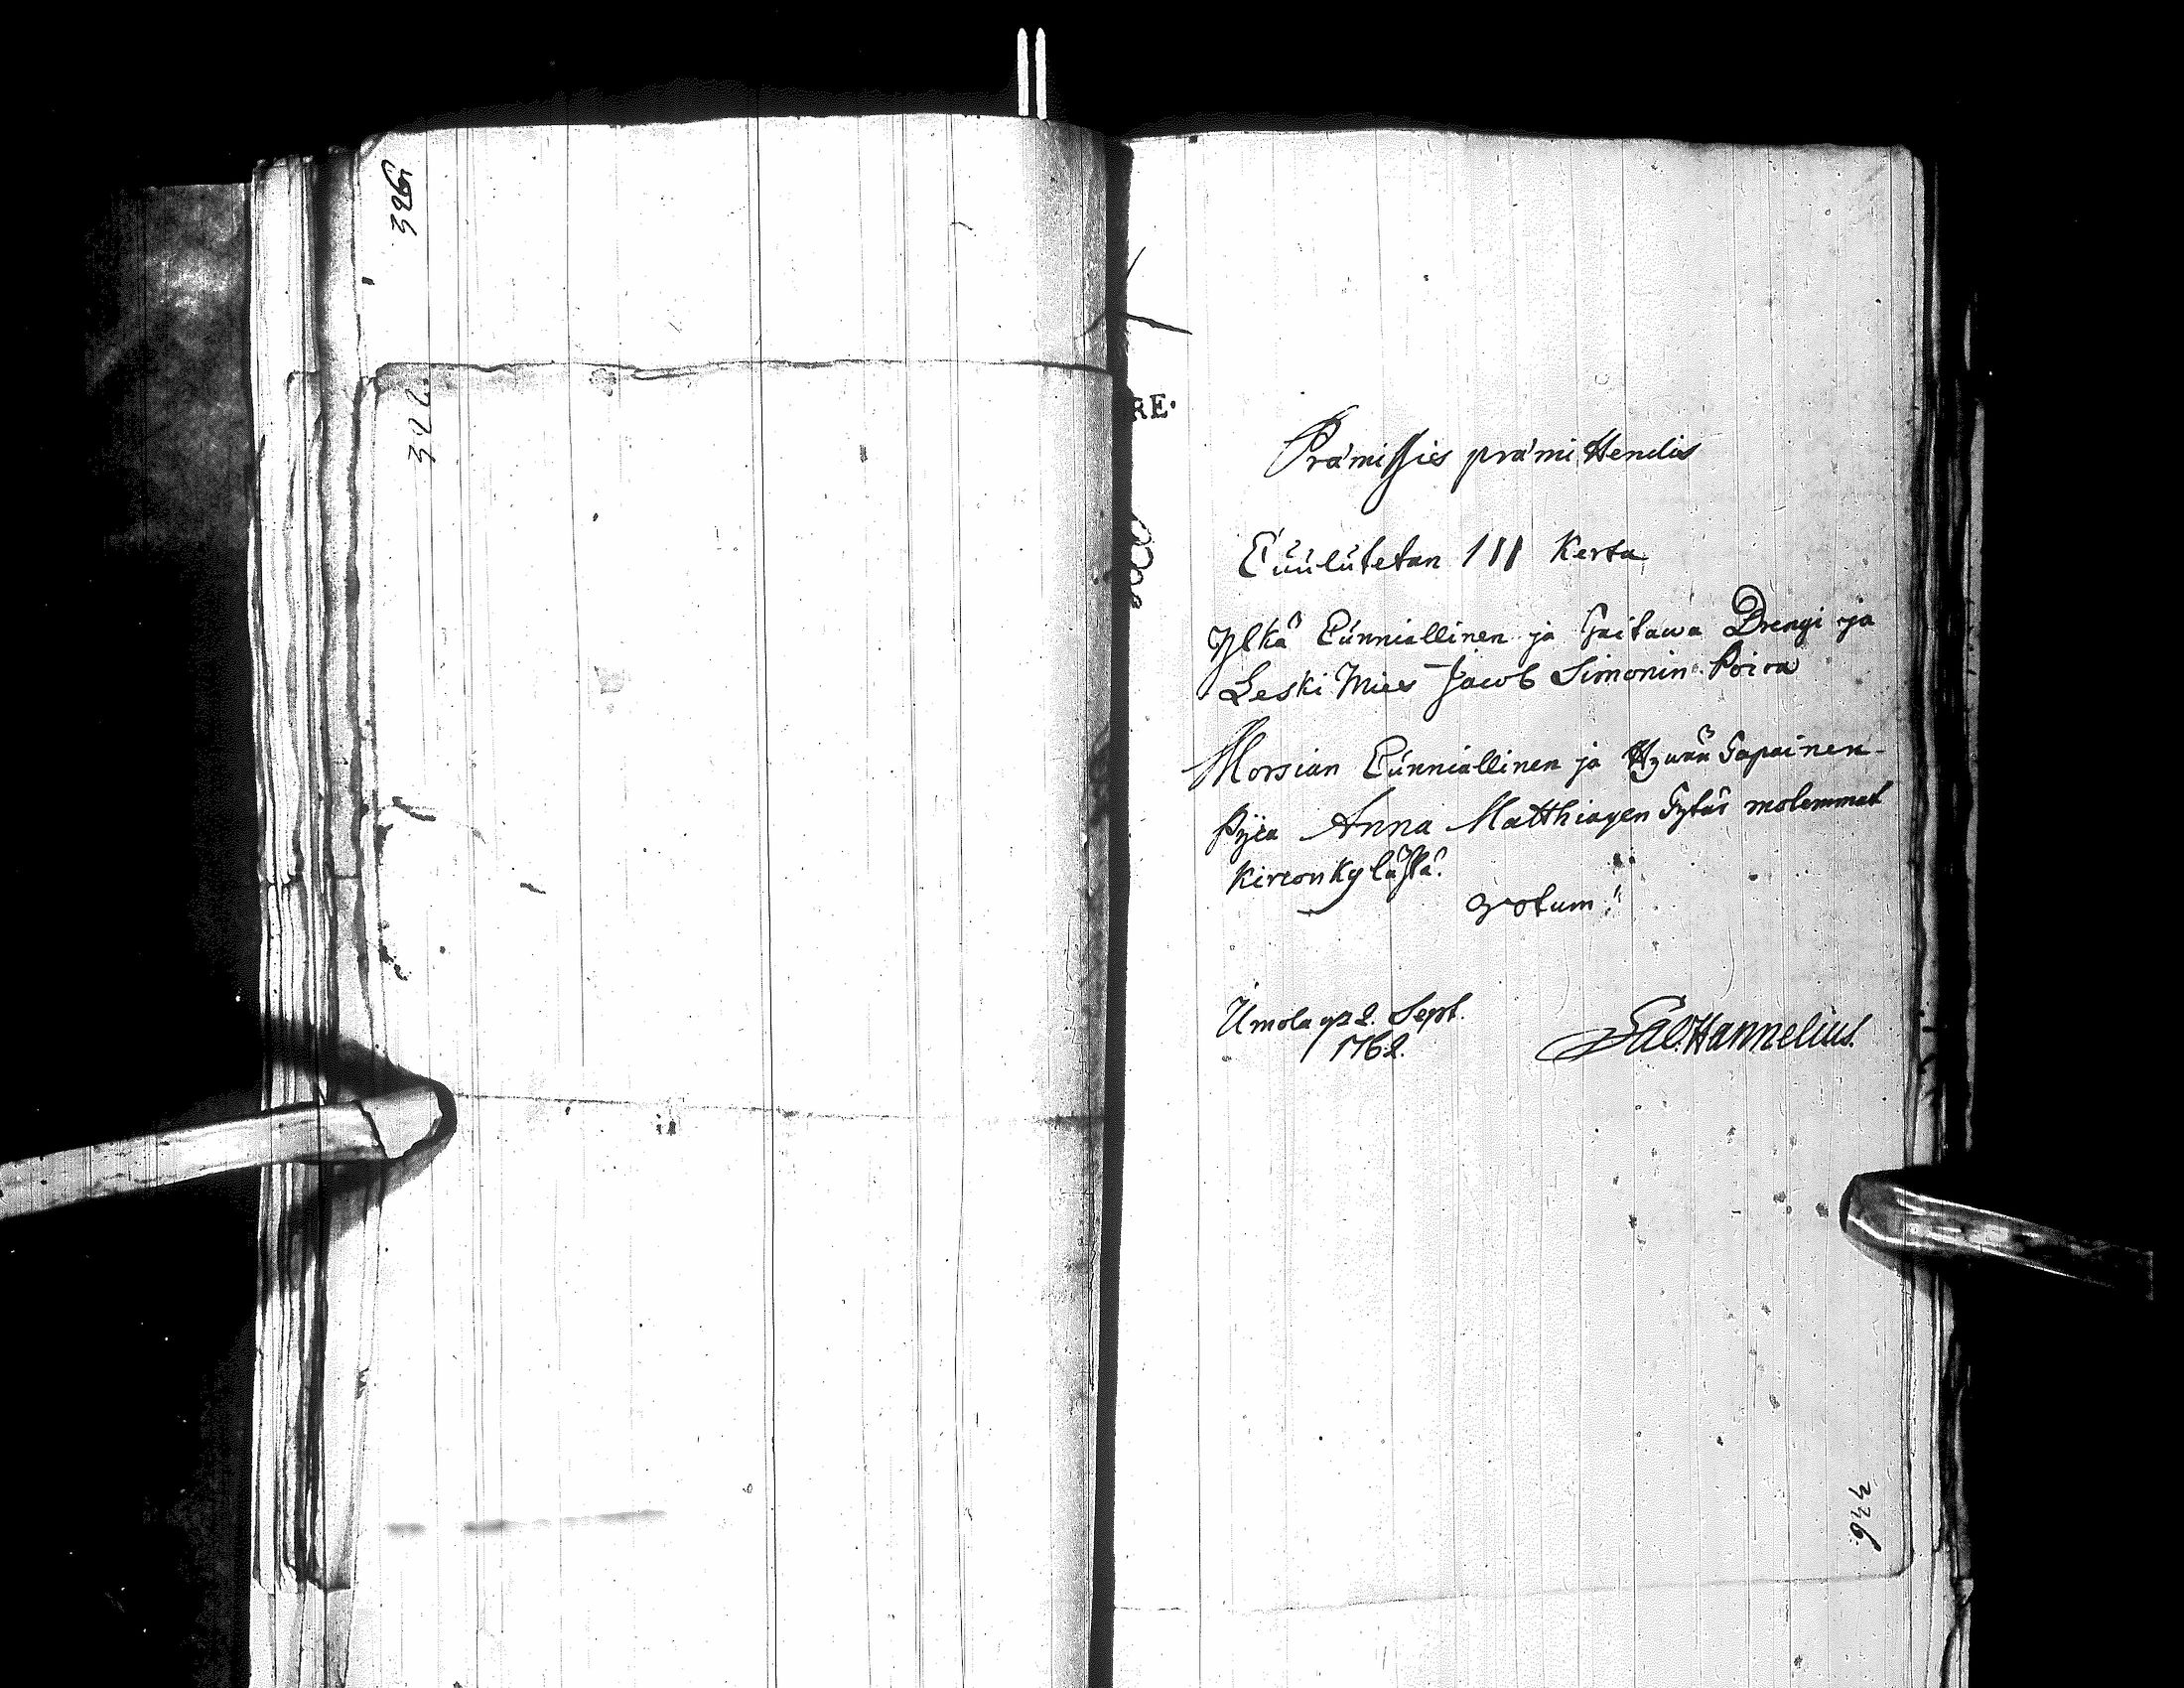 325
322
RE.
Præmissies præmittendis
Cuulutetan III Kerta
Ylkä Cunniallinen ja Taitawa Drengi ja
Leski Mies Jacob Simonin Poica
Morsian Cunniallinen ja Hywän Tapainen
Pijca Anna Matthiaxen Tytär molemmat
Kirconkylästä.
Votum!
Umola 2. Sept.
1762.
Sal. Hannelius.
326.